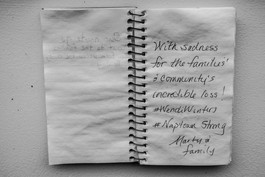 With sadness
for the families'
& community's
incredible loss!
#WendiWinters
#Naptown Strong
Martys &
family